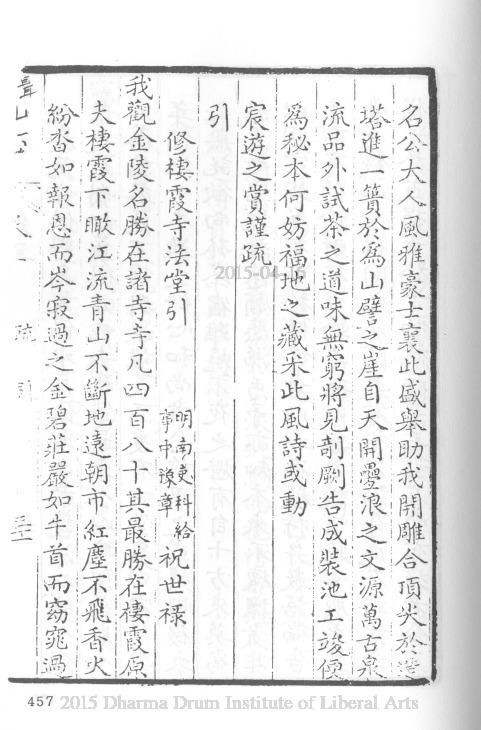 名公大人風雅豪士襄此盛舉助我開雕合頂尖於
塔進一簣於爲山譬之崖自天開疊浪之文源萬古泉
流品外試茶之道味無窮將見剞劂告成裝池工竣便
爲秘本何妨福地之藏采此風詩或動
宸遊之賞謹疏
引
修棲霞寺法堂引
明南吏科給事中豫章祝世祿
我觀金陵名勝在諸寺寺凡四百八十其最勝在棲霞原
夫棲霞下瞰江流青山不斷地遠朝市紅塵不飛香火
紛沓如報恩而岑寂過之金碧莊嚴如牛首而窈窕過
疏引
2015-04-16
457 2015 Dharma Drum Institute of Liberal Arts